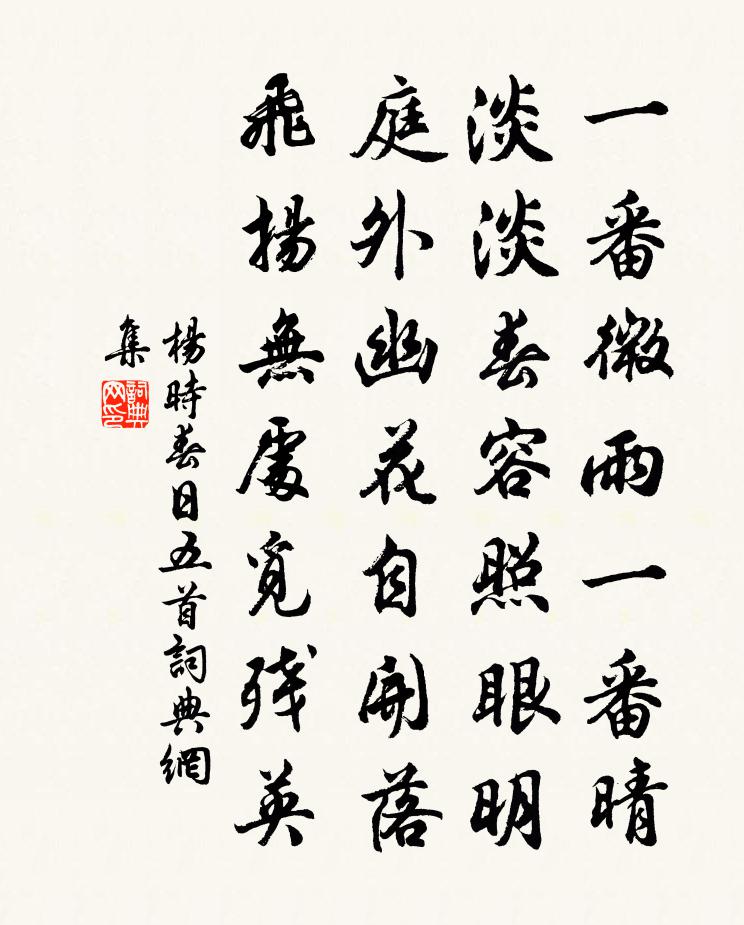 一番微雨一番晴
淡淡春容照眼明
庭外幽花自開落
飛揚無處覓残英
楊時春日五首詞典網
集
詞典
网印